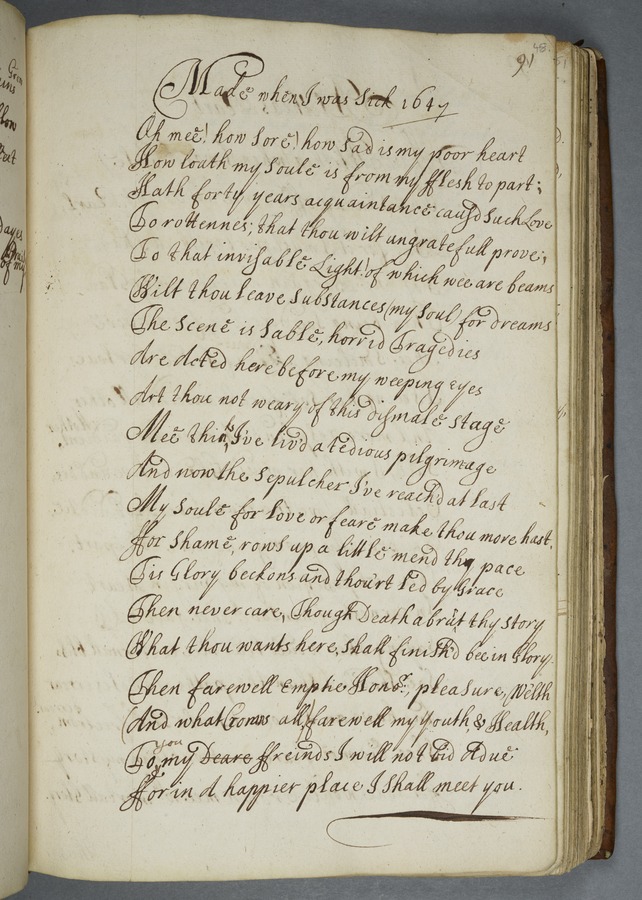 48.
91
Made when I was Sick 1647
Oh mee! how sore! how sad is my poor heart
How loath my Soule is from my fflesh to part;
Hath forty years acquaintance caus'd such Love
To rottennes; that thou wilt ungratefull prove;
To that invisable Light! of which wee are beams
Wilt thou leave Substances (my Soul) for dreams
The Scene is Sable, horrid Tragedies
Are Acted here before my weeping eyes
Art thou not weary of this dismale stage
Mee thinks I've liv'd a tedious pilgrimage
And now the Sepulcher I've reach'd at last
My Soule for love or feare make thou more hast,
ffor shame, rows up a little mend thy pace
Tis Glory beckons and thou'rt led by Grace
Then never care, Though Death abrūt thy story
What thou wants here, shall finish'd bee in Glory.
Then farewell Emptie Honor, pleasure, Wēlth
(And what Crowns all) farewell my youth, & Health,
To you my Deare ffreinds I will not bid Adue
ffor in A happier place I shall meet you.
Gren
eins
llow
Beat
Dayes
of my